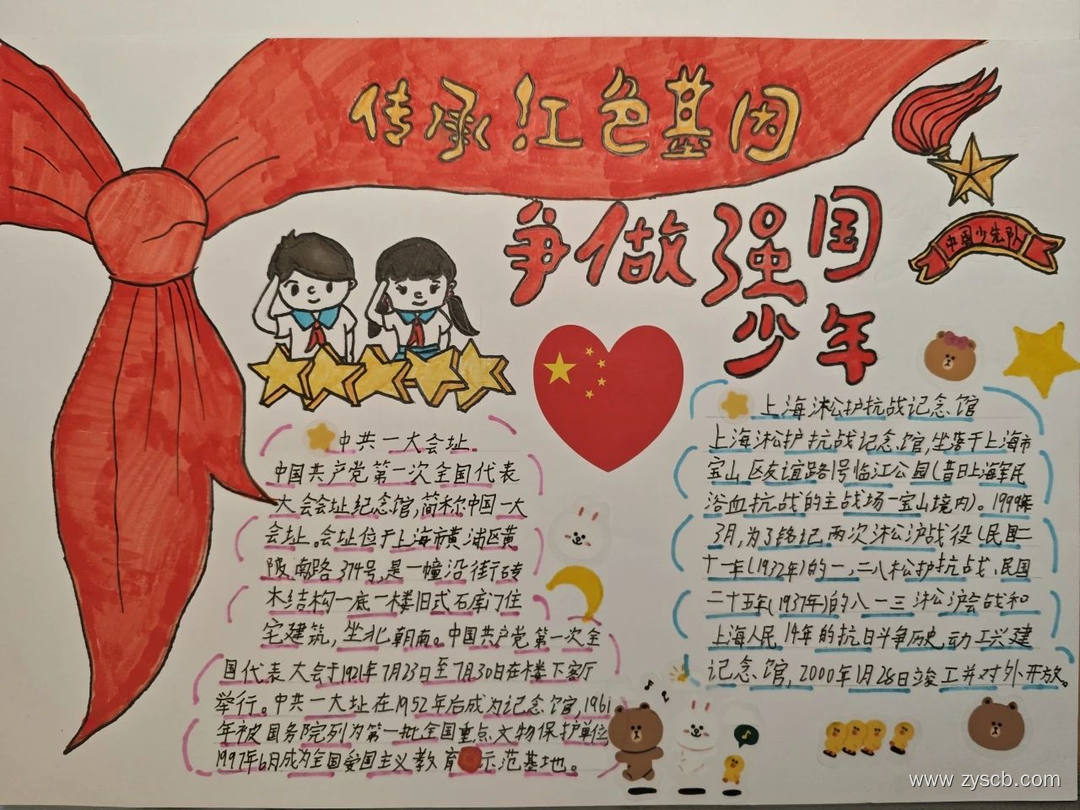 传承红色基因
争做强国
少年
中国少先队
中共一大会址
中国共产党第一次全国代表
大会会址纪念馆,简称中国一大
会址。会址位于上海市黄浦区黄
陂南路374号,是一幢沿街砖
木结构一底一楼旧式石库门住
宅建筑,坐北朝南。中国共产党第一次全
国代表大会于1921年7月23日至7月30日在楼下客厅
举行。中共一大址在1952年后成为记念馆,1961
年被国务院列为第一批全国重点文物保护单位
1997年6月成为全国爱国主义教育示范基地。
上海淞护抗战记念馆
上海淞护抗战记念馆,坐落于上海市
宝山区友谊路1号临江公园(昔日上海军民
浴血抗战的主战场一宝山境内)。1999年
3月,为了铭记两次淞沪战役(民国二
十一年(1932年)的一,二八松护抗战、民国
二十五年(1937年)的八一三淞沪会战和
上海人民14年的抗日斗争历史,动工兴建
记念馆,2000年1月28日竣工并对外开放。
www.zyscb.com